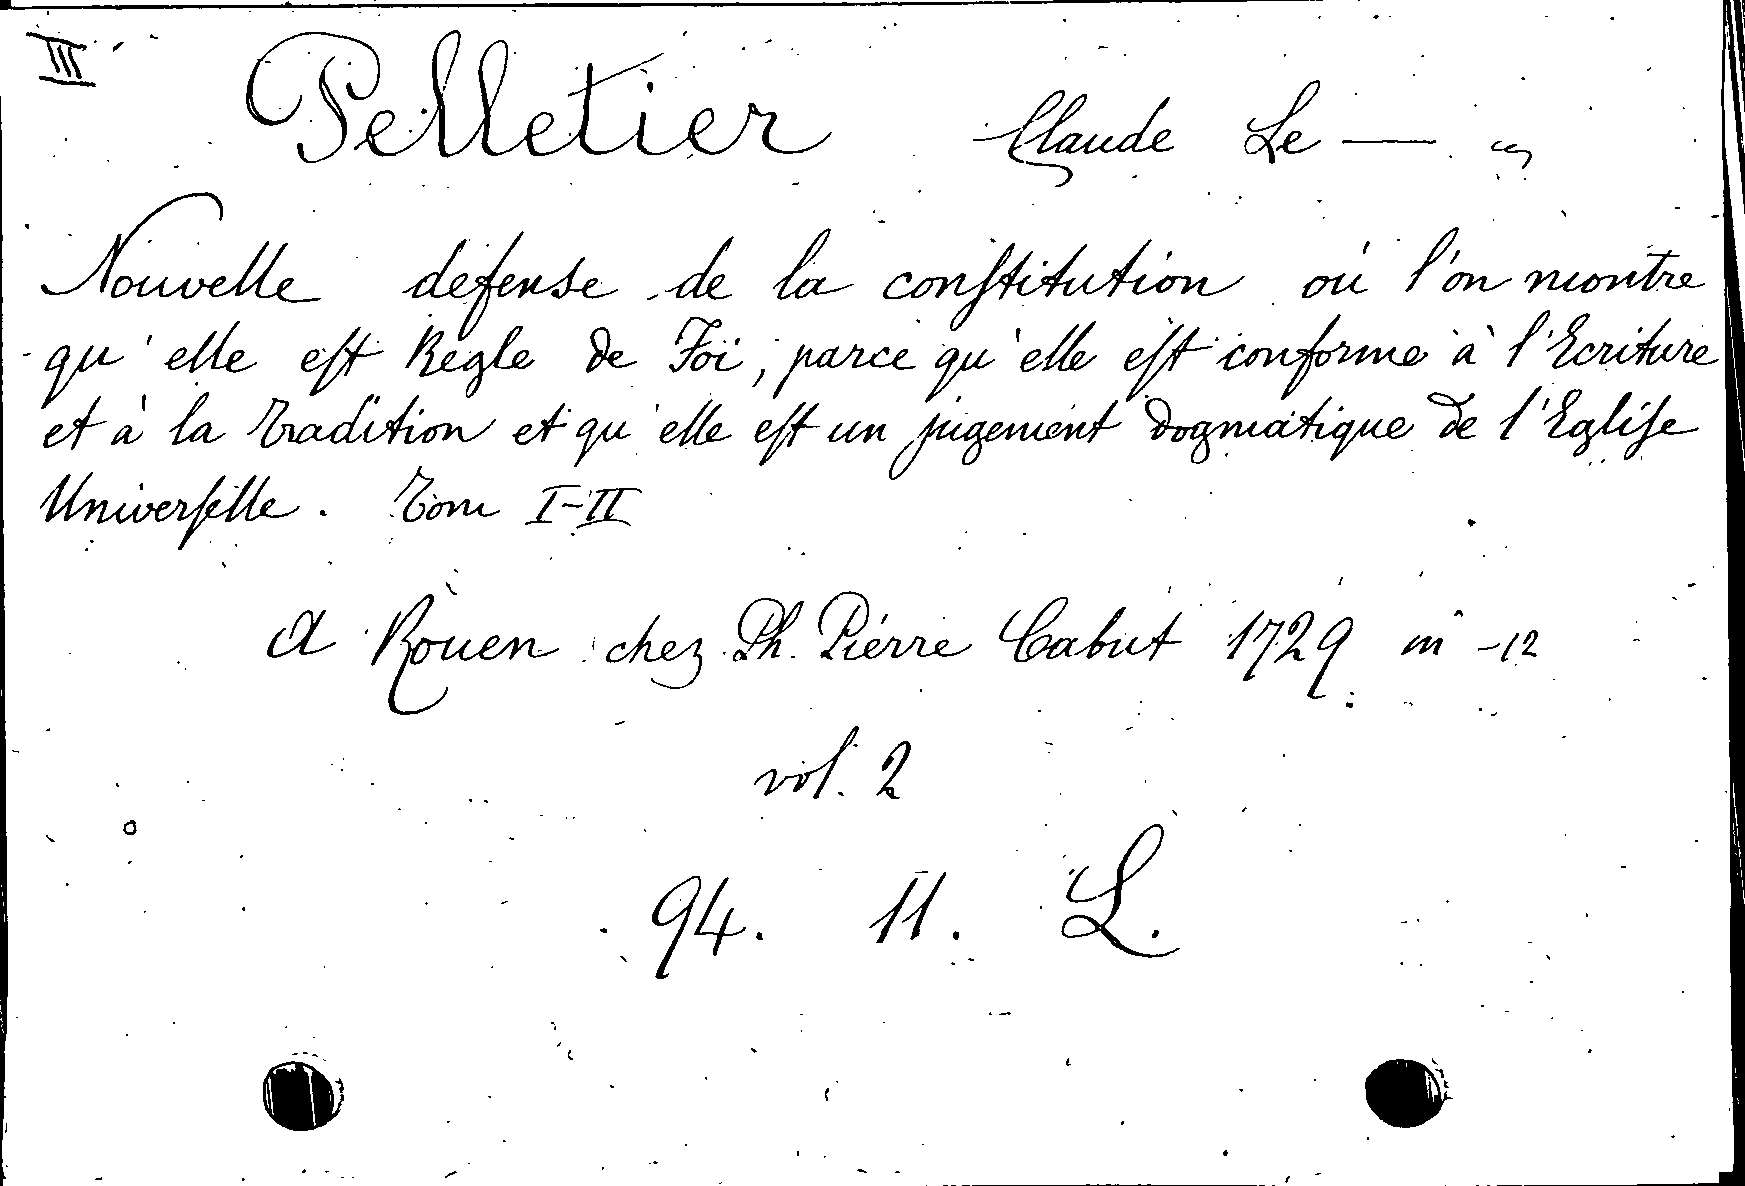 III
Pelletier Claude Le —
Nouvelle defense de la conſtitution où l'on montre
qu'elle eſt Regle de Foi, parce qu'elle eſt conforme à l'Ecriture
et à la tradition et qu'elle eſt un jugement dogmatique de l'Egliſe
Univerſelle. Tom I-II
A Rouen chez Ph. Pierre Cabut 1729 in -12
vol. 2
94. 11. L.